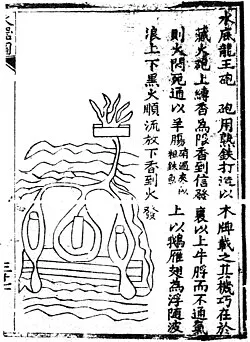 水底龍王砲 砲用熟鐵打造以木牌載之其機巧在於
藏火砲上縛香為段香到信發裹以上牛脬而不通氣
則火悶死通以羊腸上以鵝雁翅為浮隨波
浪上下黑火順流放下香到火發